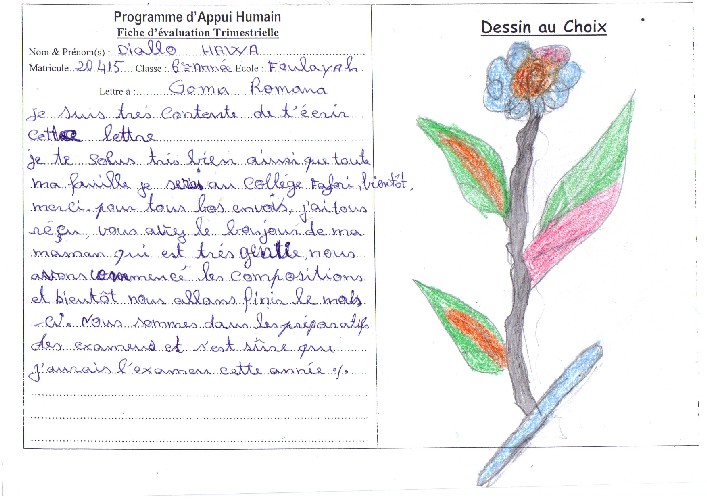 Programme d'Appui Humain
Fiche d'évaluation Trimestrielle
Nom & Prénom(s) : Diallo HAWA
Matricule 20415 Classe : 6èmme Ecole : Foulayah
Lettre à : Goma Romana
je suis très contente de t'écrir
Cette lettre
je te salus très bien ainsi que toute
ma famille je serai au Collège Safari, bientôt,
merci pour tous bos envois, j'ai tous
réçu, vous avez le bonjour de ma
maman qui est très gentlle, nous
avons commencé les compositions
et bientôt nous allans finir le mois
-ci. Nous sommes dans les préparatifs
des examens et s'est sûre que
j'aurais l'examen cette année %.
Dessin au Choix